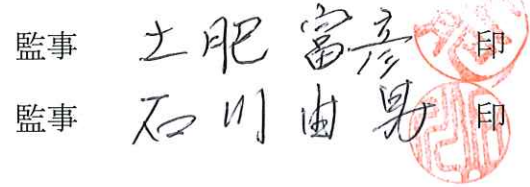 監事 土肥富彦 印
監事 石川由晃 印